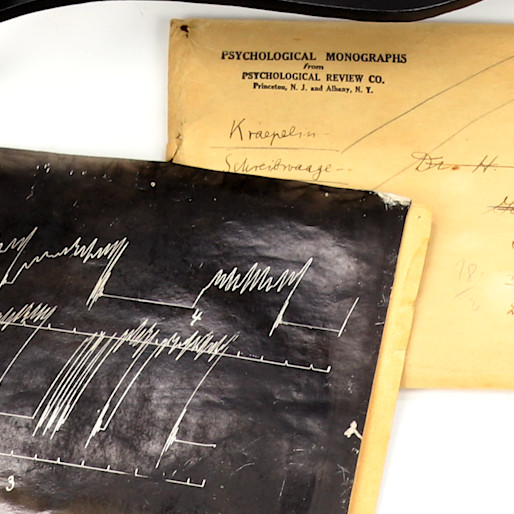 PSYCHOLOGICAL MONOGRAPHS
from
PSYCHOLOGICAL REVIEW CO.
Princeton, N. J. and Albany, N. Y.
Kraepelin
Schreibwaage
Dr. H.
4
2
3